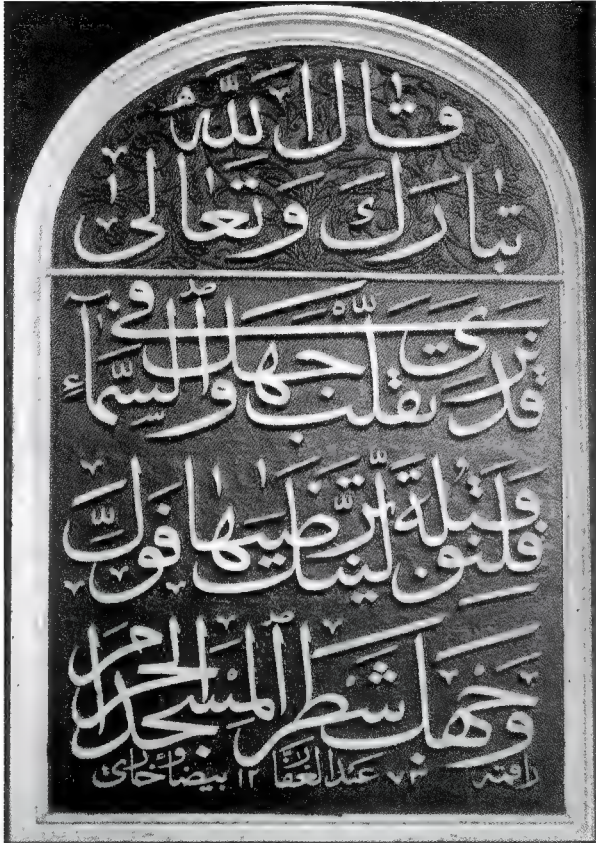 قال الله
تبارك وتعالى
قد نرى تقلب وجهك في السمآء
فلنولينك قبلة ترضيها فول
وجهك شطر المسجد الحرام
راقمه عبدالغفار بيضاوخاري